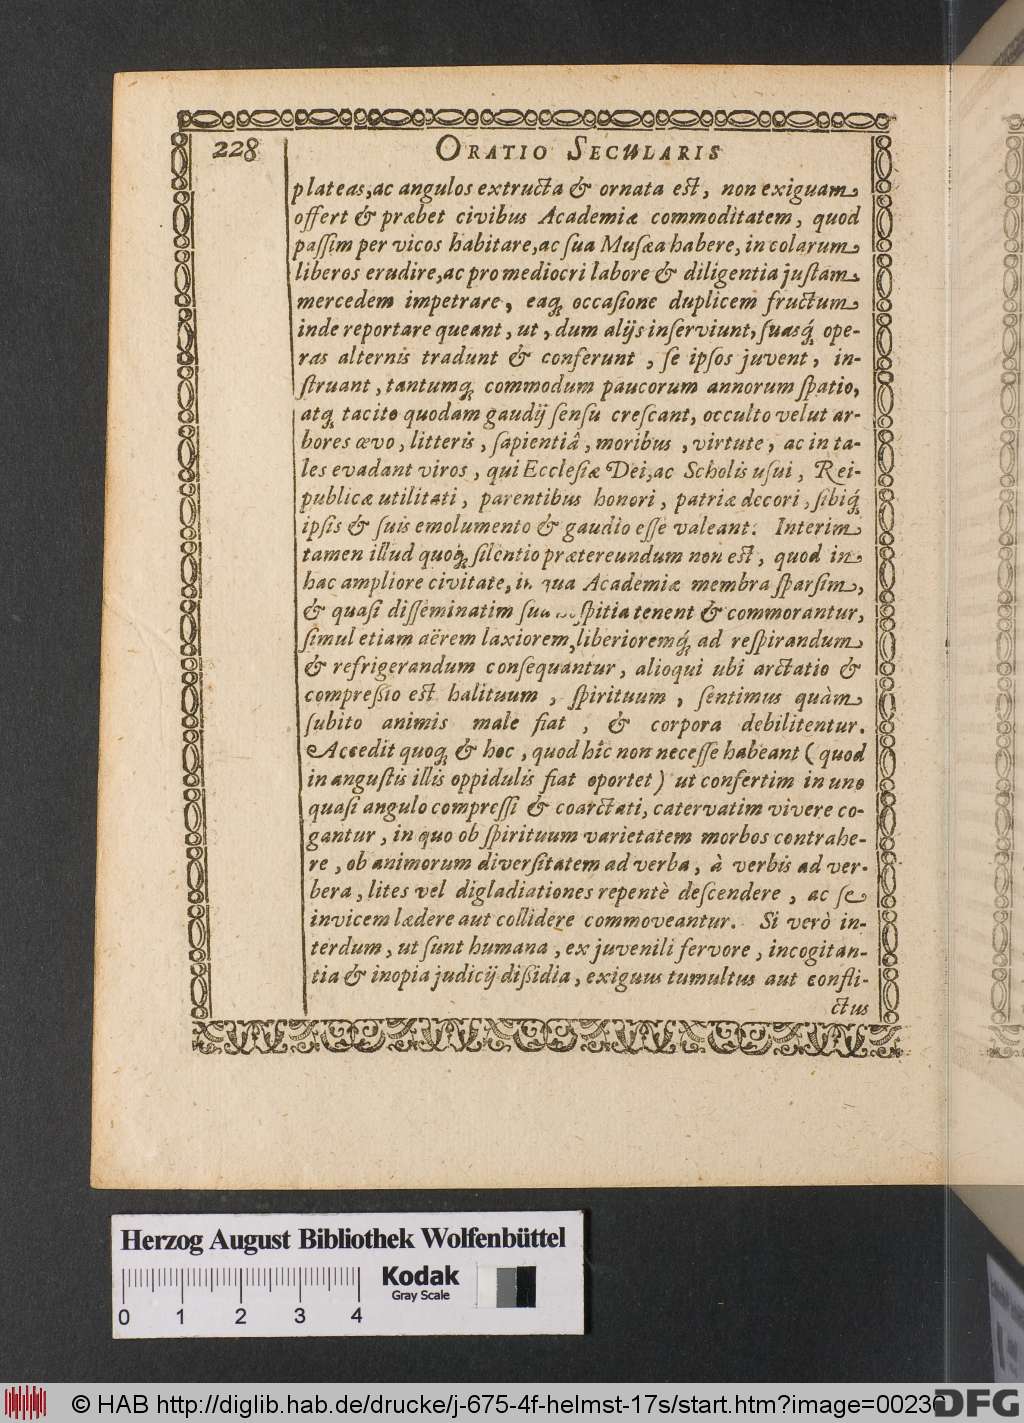 228
ORATIO SECULARIS
plateas, ac angulos extructa & ornata est, non exiguam
offert & præbet civibus Academiæ commoditatem, quod
paſſim per vicos habitare, ac ſua Muſæa habere, incolarum
liberos erudire, ac pro mediocri labore & diligentia juſtam
mercedem impetrare, eaq́; occaſione duplicem fructum
inde reportare queant, ut, dum alijs inſerviunt, ſuasq́; ope-
ras alternis tradunt & conferunt, ſe ipſos juvent, in-
ſtruant, tantumq́; commodum paucorum annorum ſpatio,
atq́; tacito quodam gaudij ſenſu creſcant, occulto velut ar-
bores ævo, litteris, ſapientiâ, moribus, virtute, ac in ta-
les evadant viros, qui Eccleſiæ Dei, ac Scholis uſui, Rei-
publicæ utilitati, parentibus honori, patriæ decori, ſibiq́;
ipſis & ſuis emolumento & gaudio eſſe valeant. Interim
tamen illud quoq́; ſilentio prætereundum non eſt, quod in
hac ampliore civitate, in qua Academiæ membra ſparſim,
& quaſi diſſeminatim ſua tenent & commorantur,
ſimul etiam aërem laxiorem, liberioremq́; ad reſpirandum
& refrigerandum conſequantur, alioqui ubi arctatio &
compreßio eſt halituum, ſpirituum, ſentimus quàm
ſubito animis male fiat, & corpora debilitentur.
Accedit quoq́; & hoc, quod hîc non neceſſe habeant (quod
in anguſtis illis oppidulis fiat oportet) ut confertim in uno
quaſi angulo compreſſi & coarctati, catervatim vivere co-
gantur, in quo ob ſpirituum varietatem morbos contrahe-
re, ob animorum diverſitatem ad verba, à verbis ad ver-
bera, lites vel digladiationes repentè deſcendere, ac ſe
invicem lædere aut collidere commoveantur. Si verò in-
terdum, ut ſunt humana, ex juvenili fervore, incogitan-
tia & inopia judicij dißidia, exiguus tumultus aut confli-
ctus
Herzog August Bibliothek Wolfenbüttel
Kodak
Gray Scale
0 1 2 3 4
© HAB http://diglib.hab.de/drucke/j-675-4f-helmst-17s/start.htm?image=00236
DFG